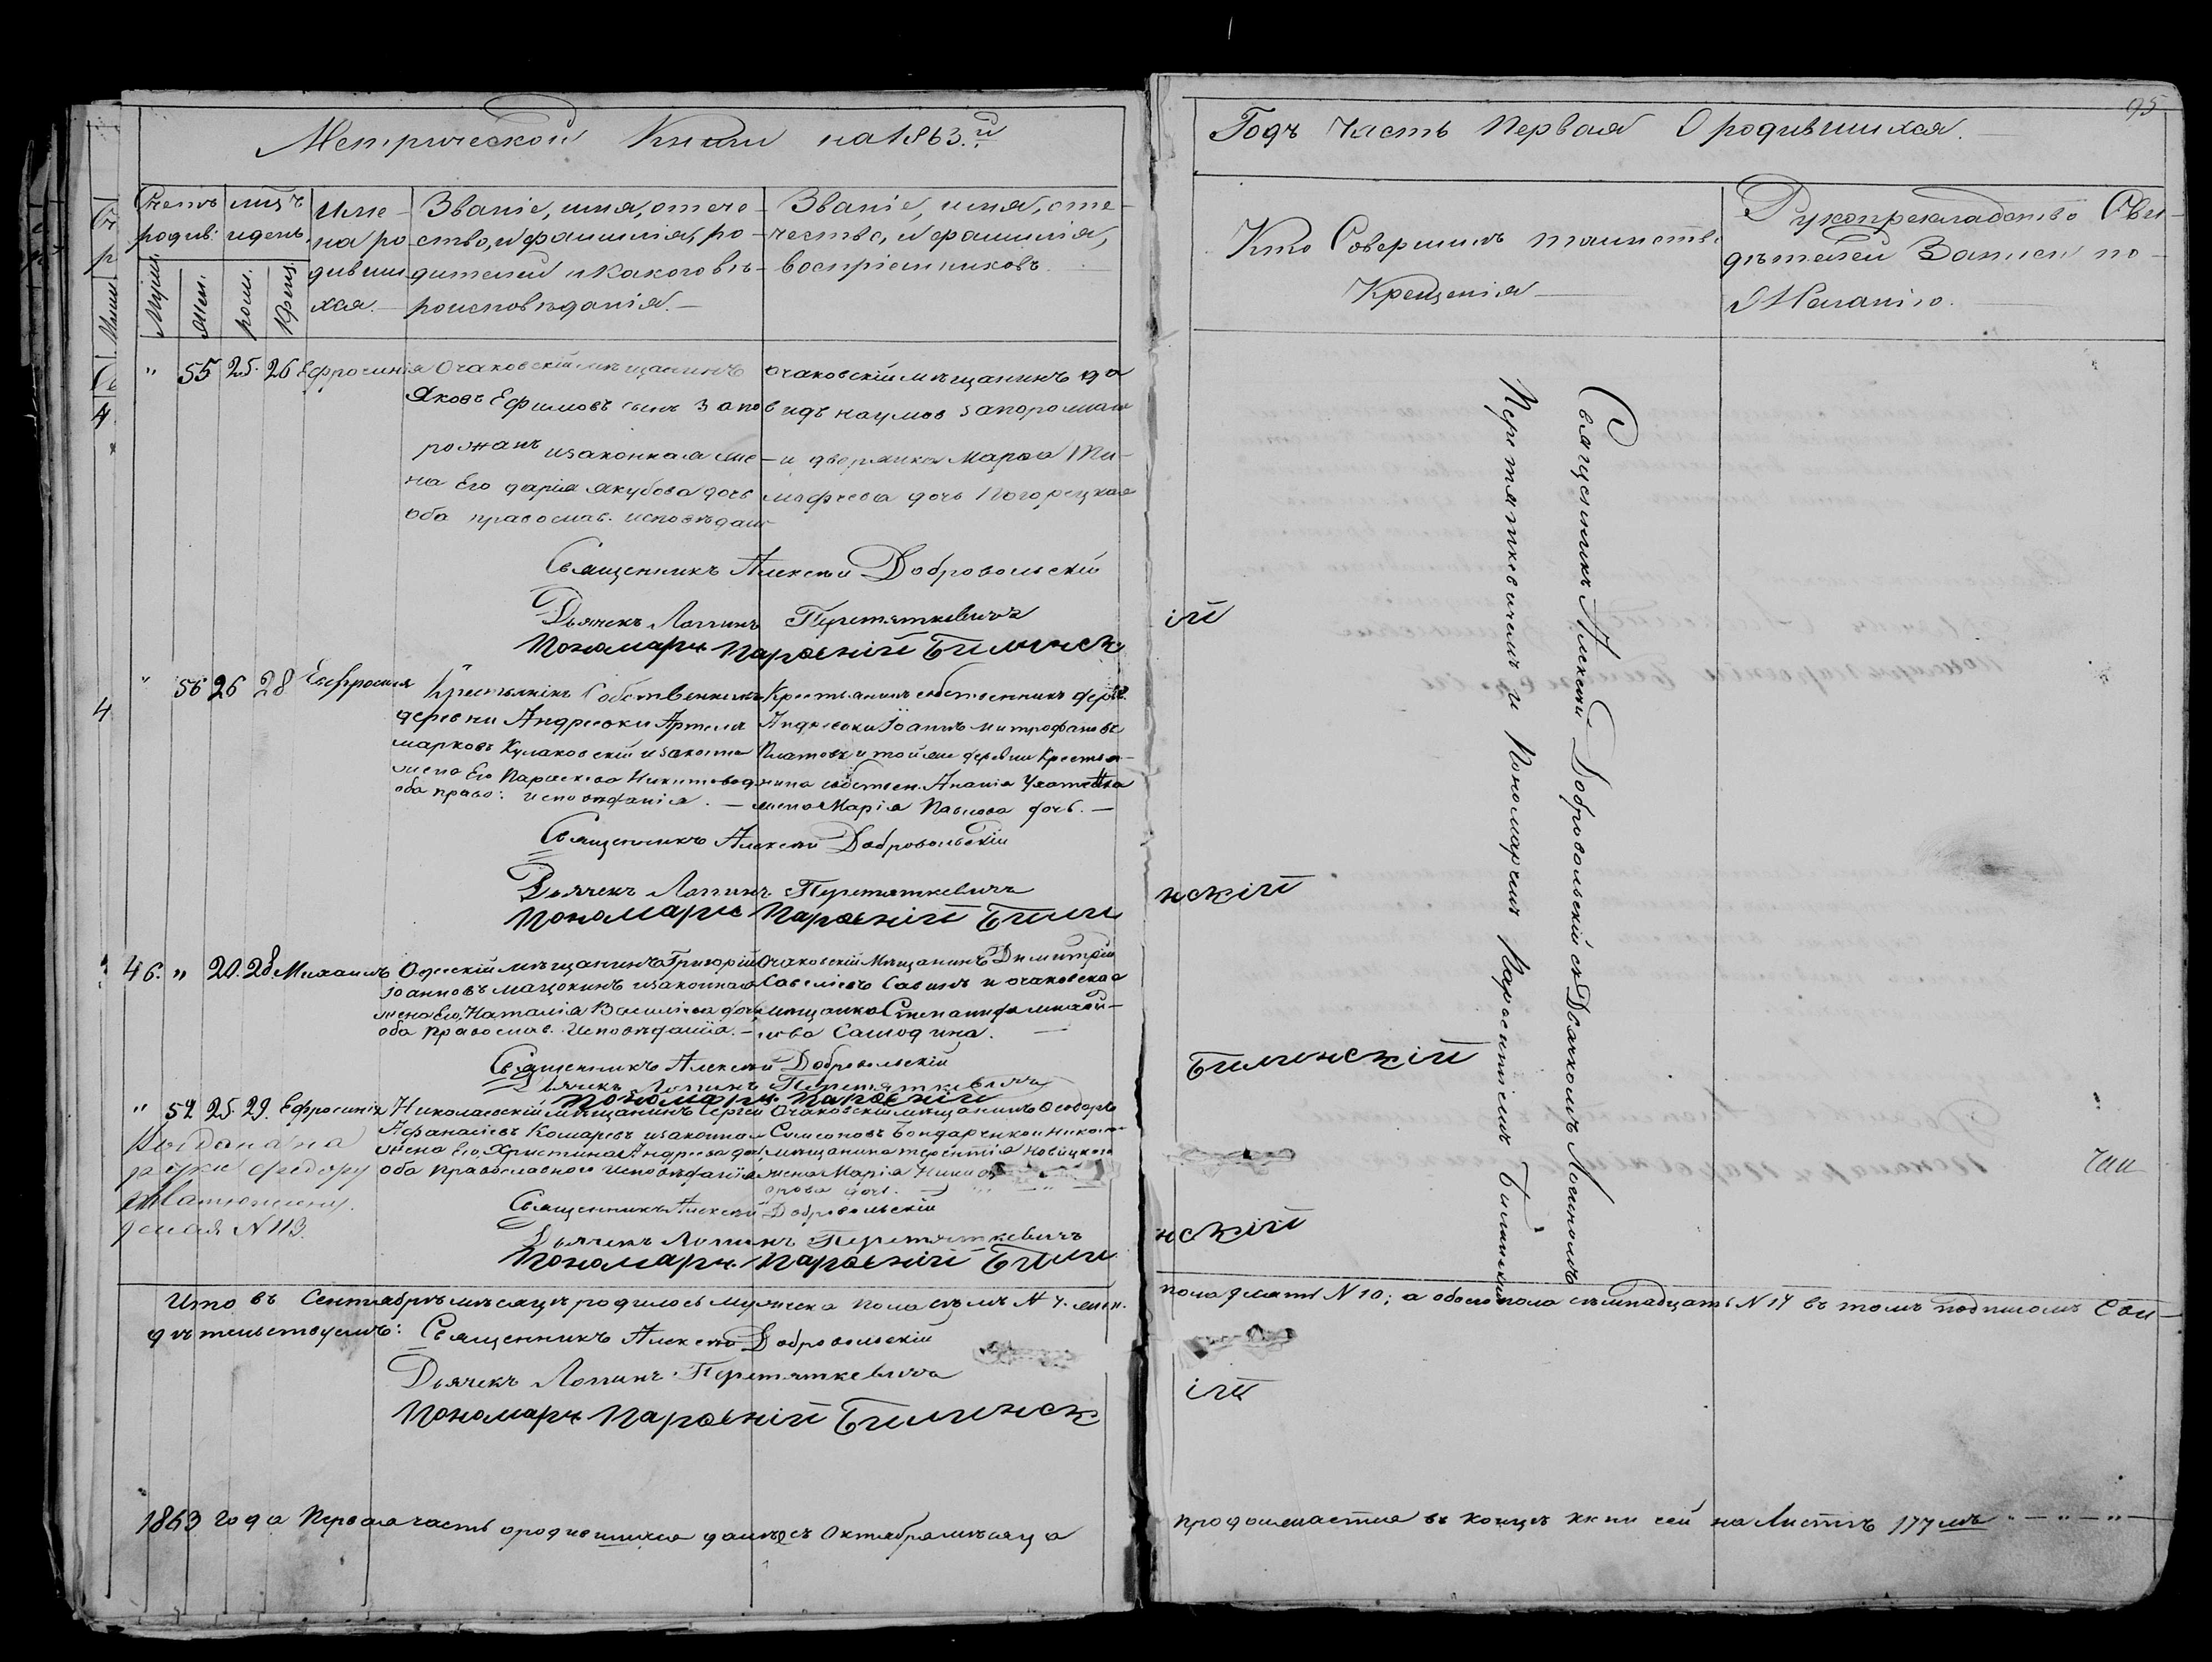 Метрической Книги на 1863.й
Годъ Часть Первая О родившихся.
95
Счетъ родив:
Муж.
Жен.
мцъ и день
рож.
Крещ.
Имена родившихся.
Званіе, имя, отечество, и фамилія, родителей и какого вѣроисповѣданія.
Званіе, имя, отечество, и фамилія, воспріемниковъ.
Кто Совершилъ таинство
Крещенія
Рукоприкладство Сви-
дѣтелей Записи по
Желанію.
" 55 25. 26 Ефросинія
Очаковскій мѣщанинъ
Яковъ Ефимовъ сынъ Запо
рожанъ и законная же-
на Его Дарія Якубова дочь
оба православ. исповѣдан
Очаковскій мѣщанинъ Да
видъ Наумов Запорожан
и дворянка Марѳа Ти-
мофеева дочь Погорецкая
Священникъ Алексѣй Добровольскій
Дьячекъ Логинъ Перетяткевичъ
Пономарь Парѳеній Билинскій
" 56 26 28 Евфросинія
Крестьянинъ Собственникъ
деревни Андреевки Артемъ
Марковъ Кулаковскій и законна
жена Его Параскева Никитова д
оба право: исповѣданія. —
Крестьянинъ собственникъ дерев.
Андреевки Іоаннъ Митрофановъ
Платовъ и той же деревни Крестья-
нина собствен. Ананія
жена Марія Павлова дочь. —
Священникъ Алексѣй Добровольскій
Дьячекъ Логинъ Перетяткевичъ
Пономарь Парѳеній Билинскій
46. " 20. 28. Михаилъ
Одесскій мѣщанинъ Григорій
Іоанновъ Мацокинъ и законная
жена Его, Наталія Василіева дочь
оба Православ. Исповѣданія. —
Очаковскій Мѣщанинъ Димитрій
Савеліевъ Савинъ и очаковская
мѣщанка Степанида Михай-
лова Самодина. —
Священникъ Алексѣй Добровольскій
Дьячекъ Логинъ Перетяткевичъ
Пономарь Парѳеній Билинскій
" 57 25. 29. Ефросинія
Николаевскій мѣщанинъ Сергей
Афанасіевъ Комаревъ и законная
жена Его, Христина Андреева доч
оба православного исповѣданія
Очаковскій мѣщанинъ Ѳеодоръ
Симеоновъ Бондаренко и Никола-
мѣщанина Терентія Новицкого
жена Марія Ники
форова дочь.
Выдана на
руки Федору
N 113.
Священникъ Алексѣй Добровольскій
Дьячекъ Логинъ Перетяткевичъ
Пономарь Парѳеній Билинскій
Священникъ Алексѣй Добровольскій съ Дьячкомъ Логиномъ
Перетяткевичемъ и Пономаремъ Парѳеніемъ Билинскимъ
Итого въ Сентябрѣ мѣсяцѣ родилось мужеска пола семь N 7. жен. пола десять N 10; а обоего пола семнадцать N 17 въ томъ подписомъ Сви-
дѣтельствуемъ: Священникъ Алексѣй Добровольскій
Дьячекъ Логинъ Перетяткевичъ
Пономарь Парѳеній Билинскій
1863 года Первая часть о родившихся далѣе съ Октября мѣсяца продолжается въ концѣ книги сей на Листѣ 177мъ